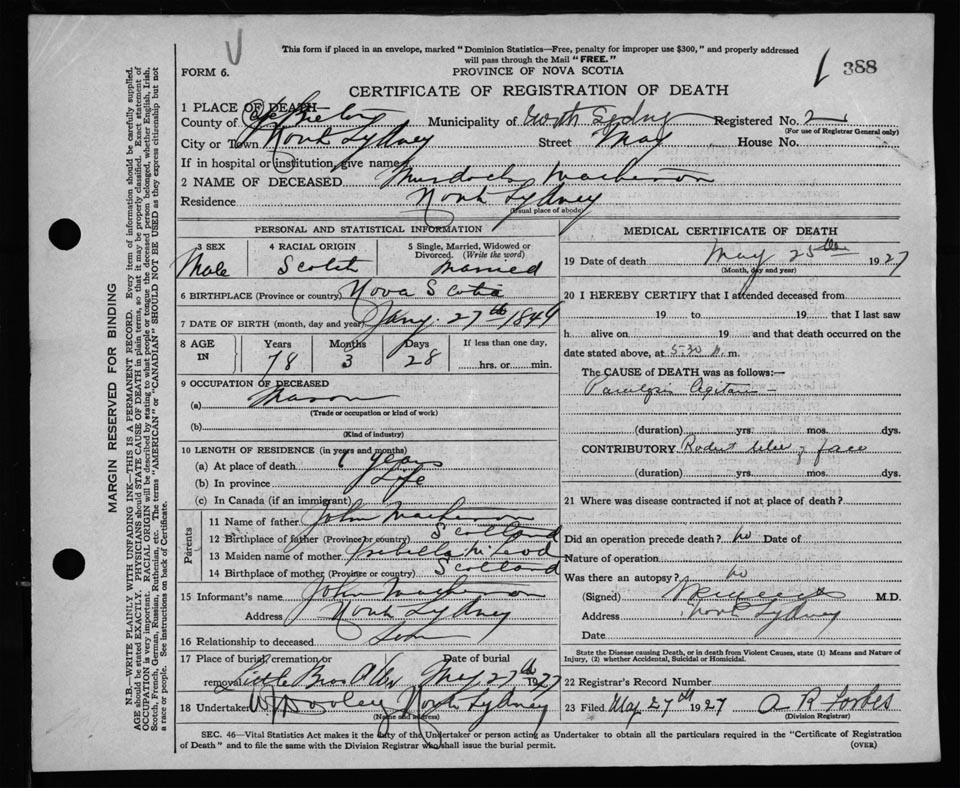 This form if placed in an envelope, marked "Dominion Statistics—Free, penalty for improper use $300," and properly addressed
will pass through the Mail "FREE."
FORM 6. PROVINCE OF NOVA SCOTIA 388
CERTIFICATE OF REGISTRATION OF DEATH
1 PLACE OF DEATH—
County of Cape Breton Municipality of North Sydney Registered No. 2
(For use of Registrar General only)
City or Town North Sydney Street May House No.
If in hospital or institution, give name
2 NAME OF DECEASED Murdock
Residence North Sydney
(Usual place of abode)
PERSONAL AND STATISTICAL INFORMATION
3 SEX 4 RACIAL ORIGIN 5 Single, Married, Widowed or Divorced. (Write the word)
Male Scotch Married
6 BIRTHPLACE (Province or country) Nova Scotia
7 DATE OF BIRTH (month, day and year) Jany. 27th 1849
8 AGE IN Years Months Days If less than one day,
78 3 28 hrs. or min.
9 OCCUPATION OF DECEASED
(a) Mason
(Trade or occupation or kind of work)
(b)
(Kind of industry)
10 LENGTH OF RESIDENCE (in years and months)
(a) At place of death years
(b) In province Life
(c) In Canada (if an immigrant)
Parents
11 Name of father John
12 Birthplace of father (Province or country) Scotland
13 Maiden name of mother Isabella McLeod
14 Birthplace of mother (Province or country) Scotland
15 Informant's name John
Address North Sydney
16 Relationship to deceased
17 Place of burial, cremation or removal Little Bras d'Or Date of burial May 27th 1927
18 Undertaker North Sydney
(Name and address)
MEDICAL CERTIFICATE OF DEATH
19 Date of death May 25th 1927
(Month, day and year)
20 I HEREBY CERTIFY that I attended deceased from
19 to 19 that I last saw
h alive on 19 and that death occurred on the
date stated above, at 5-30 m.
The CAUSE of DEATH was as follows:—
Paralysis Agitans
(duration) yrs. mos. dys.
CONTRIBUTORY Rodent ulcer of face
(duration) yrs. mos. dys.
21 Where was disease contracted if not at place of death?
Did an operation precede death? no Date of
Nature of operation
Was there an autopsy? no
(Signed) M.D.
Address North Sydney
Date
State the Disease causing Death, or in death from Violent Causes, state (1) Means and Nature of
Injury, (2) whether Accidental, Suicidal or Homicidal.
22 Registrar's Record Number
23 Filed May 27th 1927 A R Forbes
(Division Registrar)
SEC. 46—Vital Statistics Act makes it the duty of the Undertaker or person acting as Undertaker to obtain all the particulars required in the "Certificate of Registration
of Death" and to file the same with the Division Registrar who shall issue the burial permit. (OVER)
MARGIN RESERVED FOR BINDING
N.B.—WRITE PLAINLY WITH UNFADING INK—THIS IS A PERMANENT RECORD. Every item of information should be carefully supplied.
AGE should be stated EXACTLY. PHYSICIANS should STATE CAUSE OF DEATH in plain terms, so that it may be properly classified. Exact statement of
OCCUPATION is very important. RACIAL ORIGIN will be described by stating to what people or tongue the deceased person belonged, whether English, Irish,
Scotch, French, German, Russian, Ruthenian, etc. The terms "AMERICAN" or "CANADIAN" SHOULD NOT BE USED as they express citizenship but not
a race or people. See instructions on back of Certificate.